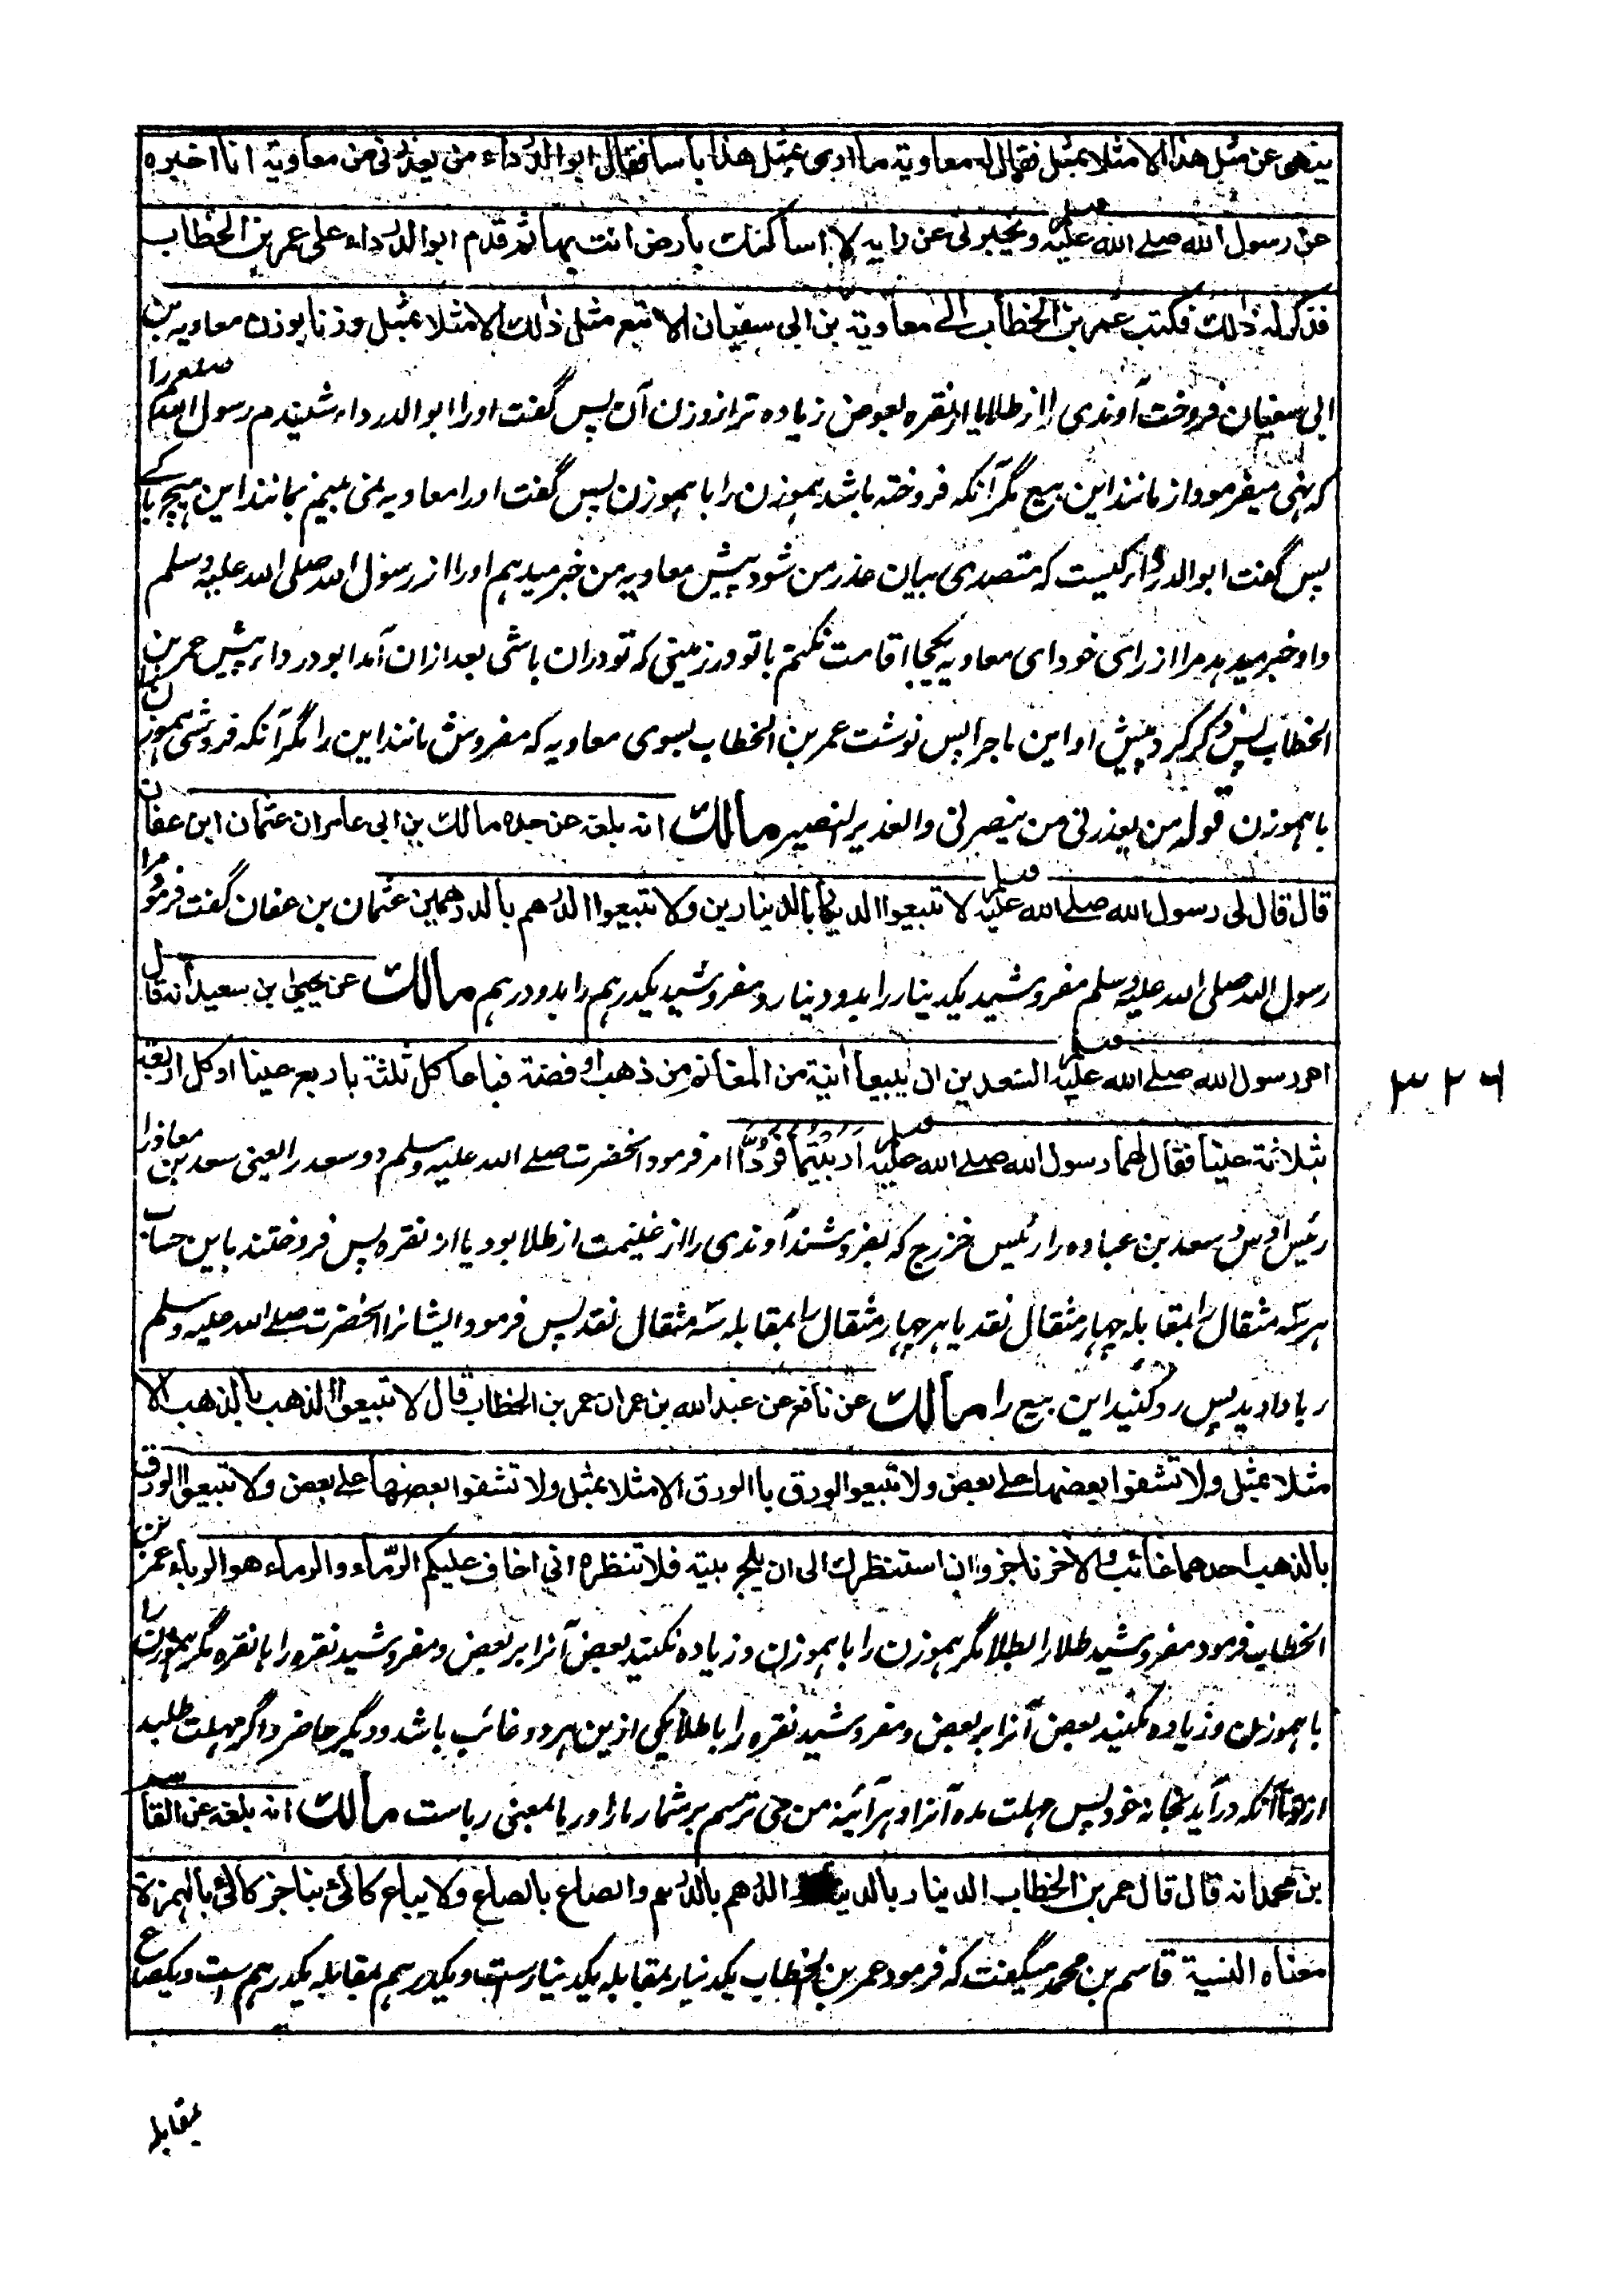 ينهى عن مثل هذا الا مثلا بمثل فقال له معاوية ما ارى بمثل هذا باسا فقال ابو الدرداء من يعذرني من معاوية انا اخبره
عن رسول الله صلے الله عليه وسلم ويخبرني عن رايه لا اساكنك بارض انت بها ثم قدم ابو الدرداء على عمر بن الخطاب
فذكر له ذلك فكتب عمر بن الخطاب الے معاوية بن ابی سفيان الا تبع مثل ذلك الا مثلا بمثل وزنا بوزن معاويه بن
ابی سفيان فروخت آوندی را از طلا يا از نقره بعوض زياده تر از وزن آن پس گفت اورا ابو الدرداء شنيدم رسول الله صلعم را
که نهی ميفرمود از مانند اين بيع مگر آنکه فروخته باشد هموزن را با هموزن پس گفت اورا معاويه نمی بينم بمانند اين هيچ باکے
پس گفت ابو الدرداء کيست که متصدی بيان عذر من شود پيش معاويه من خبر ميدهم اورا از رسول الله صلی الله عليه وسلم
و او خبر ميدهد مرا از رای خود ای معاويه يکجا اقامت نکنم با تو در زمينی که تو دران باشی بعد ازان آمد ابو درداء پيش عمر بن
الخطاب پس ذکر کرد پيش او اين ماجرا پس نوشت عمر بن الخطاب بسوی معاويه که مفروش مانند اين را مگر آنکه فروشی هموزن را
با هموزن قوله من يعذرني من ينصرني والعذير النصير مالك انه بلغه عن جده مالك بن ابی عامر ان عثمان ابن عفان
قال قال لی رسول الله صلے الله عليه وسلم لا تبيعوا الدينار بالدينارين ولا تبيعوا الدرهم بالدرهمين عثمان بن عفان گفت فرمود مرا
رسول الله صلی الله عليه وسلم مفروشيد يکدينار را بدو دينار و مفروشيد يکدرهم را بدو درهم مالك عن يحيی بن سعيد انه قال
امر رسول الله صلے الله عليه وسلم السعدين ان يبيعا انية من المغانم من ذهب او فضة فباعا كل ثلثة باربعة عينا او كل اربعة
بثلاثة عينا فقال لهما رسول الله صلے الله عليه وسلم اربيتما فردا امر فرمود آنحضرت صلے الله عليه وسلم دو سعد را يعنی سعد بن معاذ را
رئيس اوس و سعد بن عباده را رئيس خزرج که بفروشند آوندی را از غنيمت از طلا بود يا از نقره پس فروختند باين حساب
هر سه مثقال را بمقابله چهار مثقال نقد يا هر چهار مثقال را بمقابله سه مثقال نقد پس فرمود ايشانرا آنحضرت صلے الله عليه وسلم
ربا داديد پس رد کنيد اين بيع را مالك عن نافع عن عبد الله بن عمر ان عمر بن الخطاب قال لا تبيعوا الذهب بالذهب الا
مثلا بمثل ولا تشفوا بعضها علے بعض ولا تبيعوا الورق باالورق الا مثلا بمثل ولا تشفوا بعضها علے بعض ولا تبيعوا الورق
بالذهب احدهما غائب والآخر ناجز وان استنظرك الی ان يلج بيته فلا تنظره انی اخاف عليكم الرماء والرماء هو الرباء عمر بن
الخطاب فرمود مفروشيد طلا را بطلا مگر هموزن را با هموزن و زياده نکنيد بعض آنرا بر بعض و مفروشيد نقره را با نقره مگر هموزن را
با هموزن و زياده نکنيد بعض آنرا بر بعض و مفروشيد نقره را با طلا يکی ازين هر دو غائب باشد و ديگر حاضر و اگر مهلت طلبد
از تو تا آنکه در آيد بخانه خود پس مهلت مده آنرا و هر آئينه من می ترسم بر شما رما را و رما بمعنی رباست مالك انه بلغه عن القاسم
بن محمد انه قال قال عمر بن الخطاب الدينار بالدينار والدرهم بالدرهم والصاع بالصاع ولا يباع كالئ بناجز كالئ بالهمزة
معناه النسية قاسم بن محمد ميگفت که فرمود عمر بن الخطاب يکدينار بمقابله يکدينارست و يکدرهم بمقابله يکدرهم ست و يکصاع
بمقابله
۳۲۶